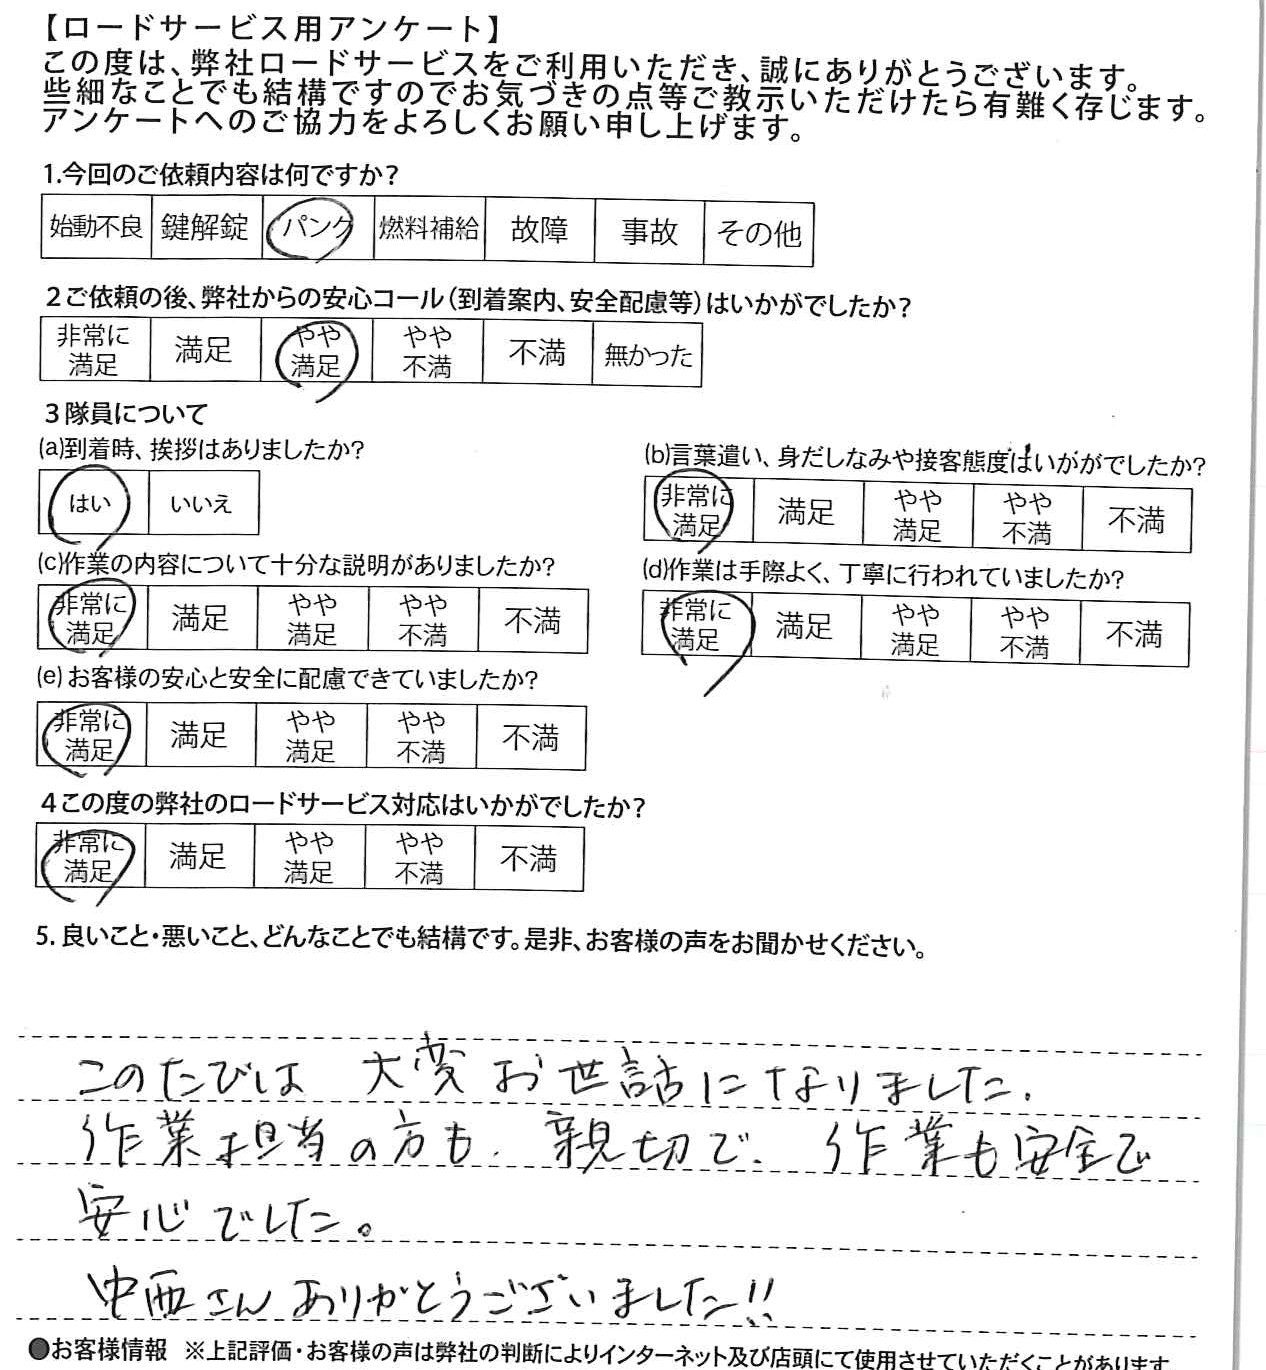 【ロードサービス用アンケート】
この度は、弊社ロードサービスをご利用いただき、誠にありがとうございます。
些細なことでも結構ですのでお気づきの点等ご教示いただけたら有難く存じます。
アンケートへのご協力をよろしくお願い申し上げます。
1.今回のご依頼内容は何ですか?
始動不良 鍵解錠 パンク 燃料補給 故障 事故 その他
2ご依頼の後、弊社からの安心コール(到着案内、安全配慮等)はいかがでしたか?
非常に満足 満足 やや満足 やや不満 不満 無かった
3隊員について
(a)到着時、挨拶はありましたか?
はい いいえ
(b)言葉遣い、身だしなみや接客態度はいががでしたか?
非常に満足 満足 やや満足 やや不満 不満
(c)作業の内容について十分な説明がありましたか?
非常に満足 満足 やや満足 やや不満 不満
(d)作業は手際よく、丁寧に行われていましたか?
非常に満足 満足 やや満足 やや不満 不満
(e)お客様の安心と安全に配慮できていましたか?
非常に満足 満足 やや満足 やや不満 不満
4この度の弊社のロードサービス対応はいかがでしたか?
非常に満足 満足 やや満足 やや不満 不満
5. 良いこと・悪いこと、どんなことでも結構です。是非、お客様の声をお聞かせください。
このたびは 大変 お世話になりました.
作業担当の方も、親切で、作業も安全で
安心でした。
中西さんありがとうございました!!
●お客様情報 ※上記評価・お客様の声は弊社の判断によりインターネット及び店頭にて使用させていただくことがあります